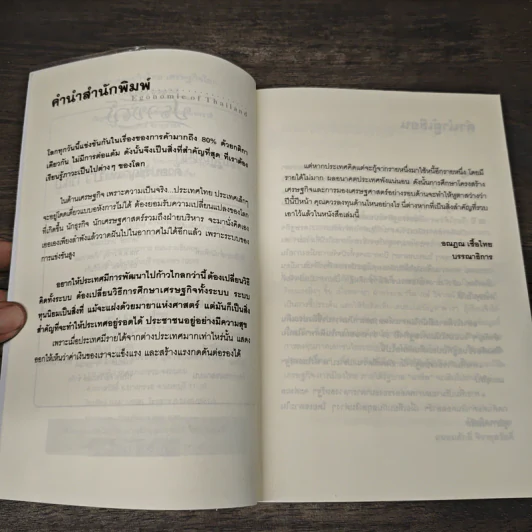 คำนำสำนักพิมพ์
Economic of Thailand
โลกทุกวันนี้แข่งขันกันในเรื่องของการค้ามากถึง 80% ด้วยกติกา
เดียวกัน ไม่มีการต่อแต้ม ดังนั้นจึงเป็นสิ่งที่สำคัญที่สุด ที่เราต้อง
เรียนรู้ภาวะเป็นไปต่างๆ ของโลก
ในด้านเศรษฐกิจ เพราะความเป็นจริง...ประเทศไทย ประเทศเล็กๆ
จะอยู่โดดเดี่ยวแบบอหังการไม่ได้ ต้องยอมรับความเปลี่ยนแปลงของโลก
ที่เกิดขึ้น นักธุรกิจ นักเศรษฐศาสตร์รวมถึงฝ่ายบริหาร จะมานั่งคิดเอง
เออเองเพียงลำพังแล้ววาดฝันไปในอากาศไม่ได้อีกแล้ว เพราะระบบของ
การแข่งขันสูง
อยากให้ประเทศมีการพัฒนาไปก้าวไกลกว่านี้ ต้องเปลี่ยนวิธี
คิดทั้งระบบ ต้องเปลี่ยนวิธีการศึกษาเศรษฐกิจทั้งระบบ ระบบ
ทุนนิยมเป็นสิ่งที่ แม้จะแฝงด้วยมายาแห่งศาสตร์ แต่มันก็เป็นสิ่ง
สำคัญที่จะทำให้ประเทศอยู่รอดได้ ประชาชนอยู่อย่างมีความสุข
เพราะเมื่อประเทศมีรายได้จากต่างประเทศมากเท่าไหร่นั้น แสดง
ออกให้เห็นว่าค่าเงินของเราจะแข็งแรง และสร้างแรงกดดันต่อรองได้
แต่หากประเทศคิดแต่จะกู้จากรายหนึ่งมาใช้หนี้อีกรายหนึ่ง โดยมี
รายได้ไม่มาก ผลอนาคตประเทศพังแน่นอน ดังนั้นการศึกษาโครงสร้าง
เศรษฐกิจและการมองเศรษฐศาสตร์อย่างรอบด้านจะทำให้หูตาสว่างว่า
ปีนี้ปีหน้า คุณควรลงทุนด้านไหนอย่างไร นี่ต่างหากที่เป็นสิ่งสำคัญที่รวบ
เอาไว้แล้วในหนังสือเล่มนี้
ณัฏฐณ เชื้อไทย
บรรณาธิการ
คำนำผู้เขียน